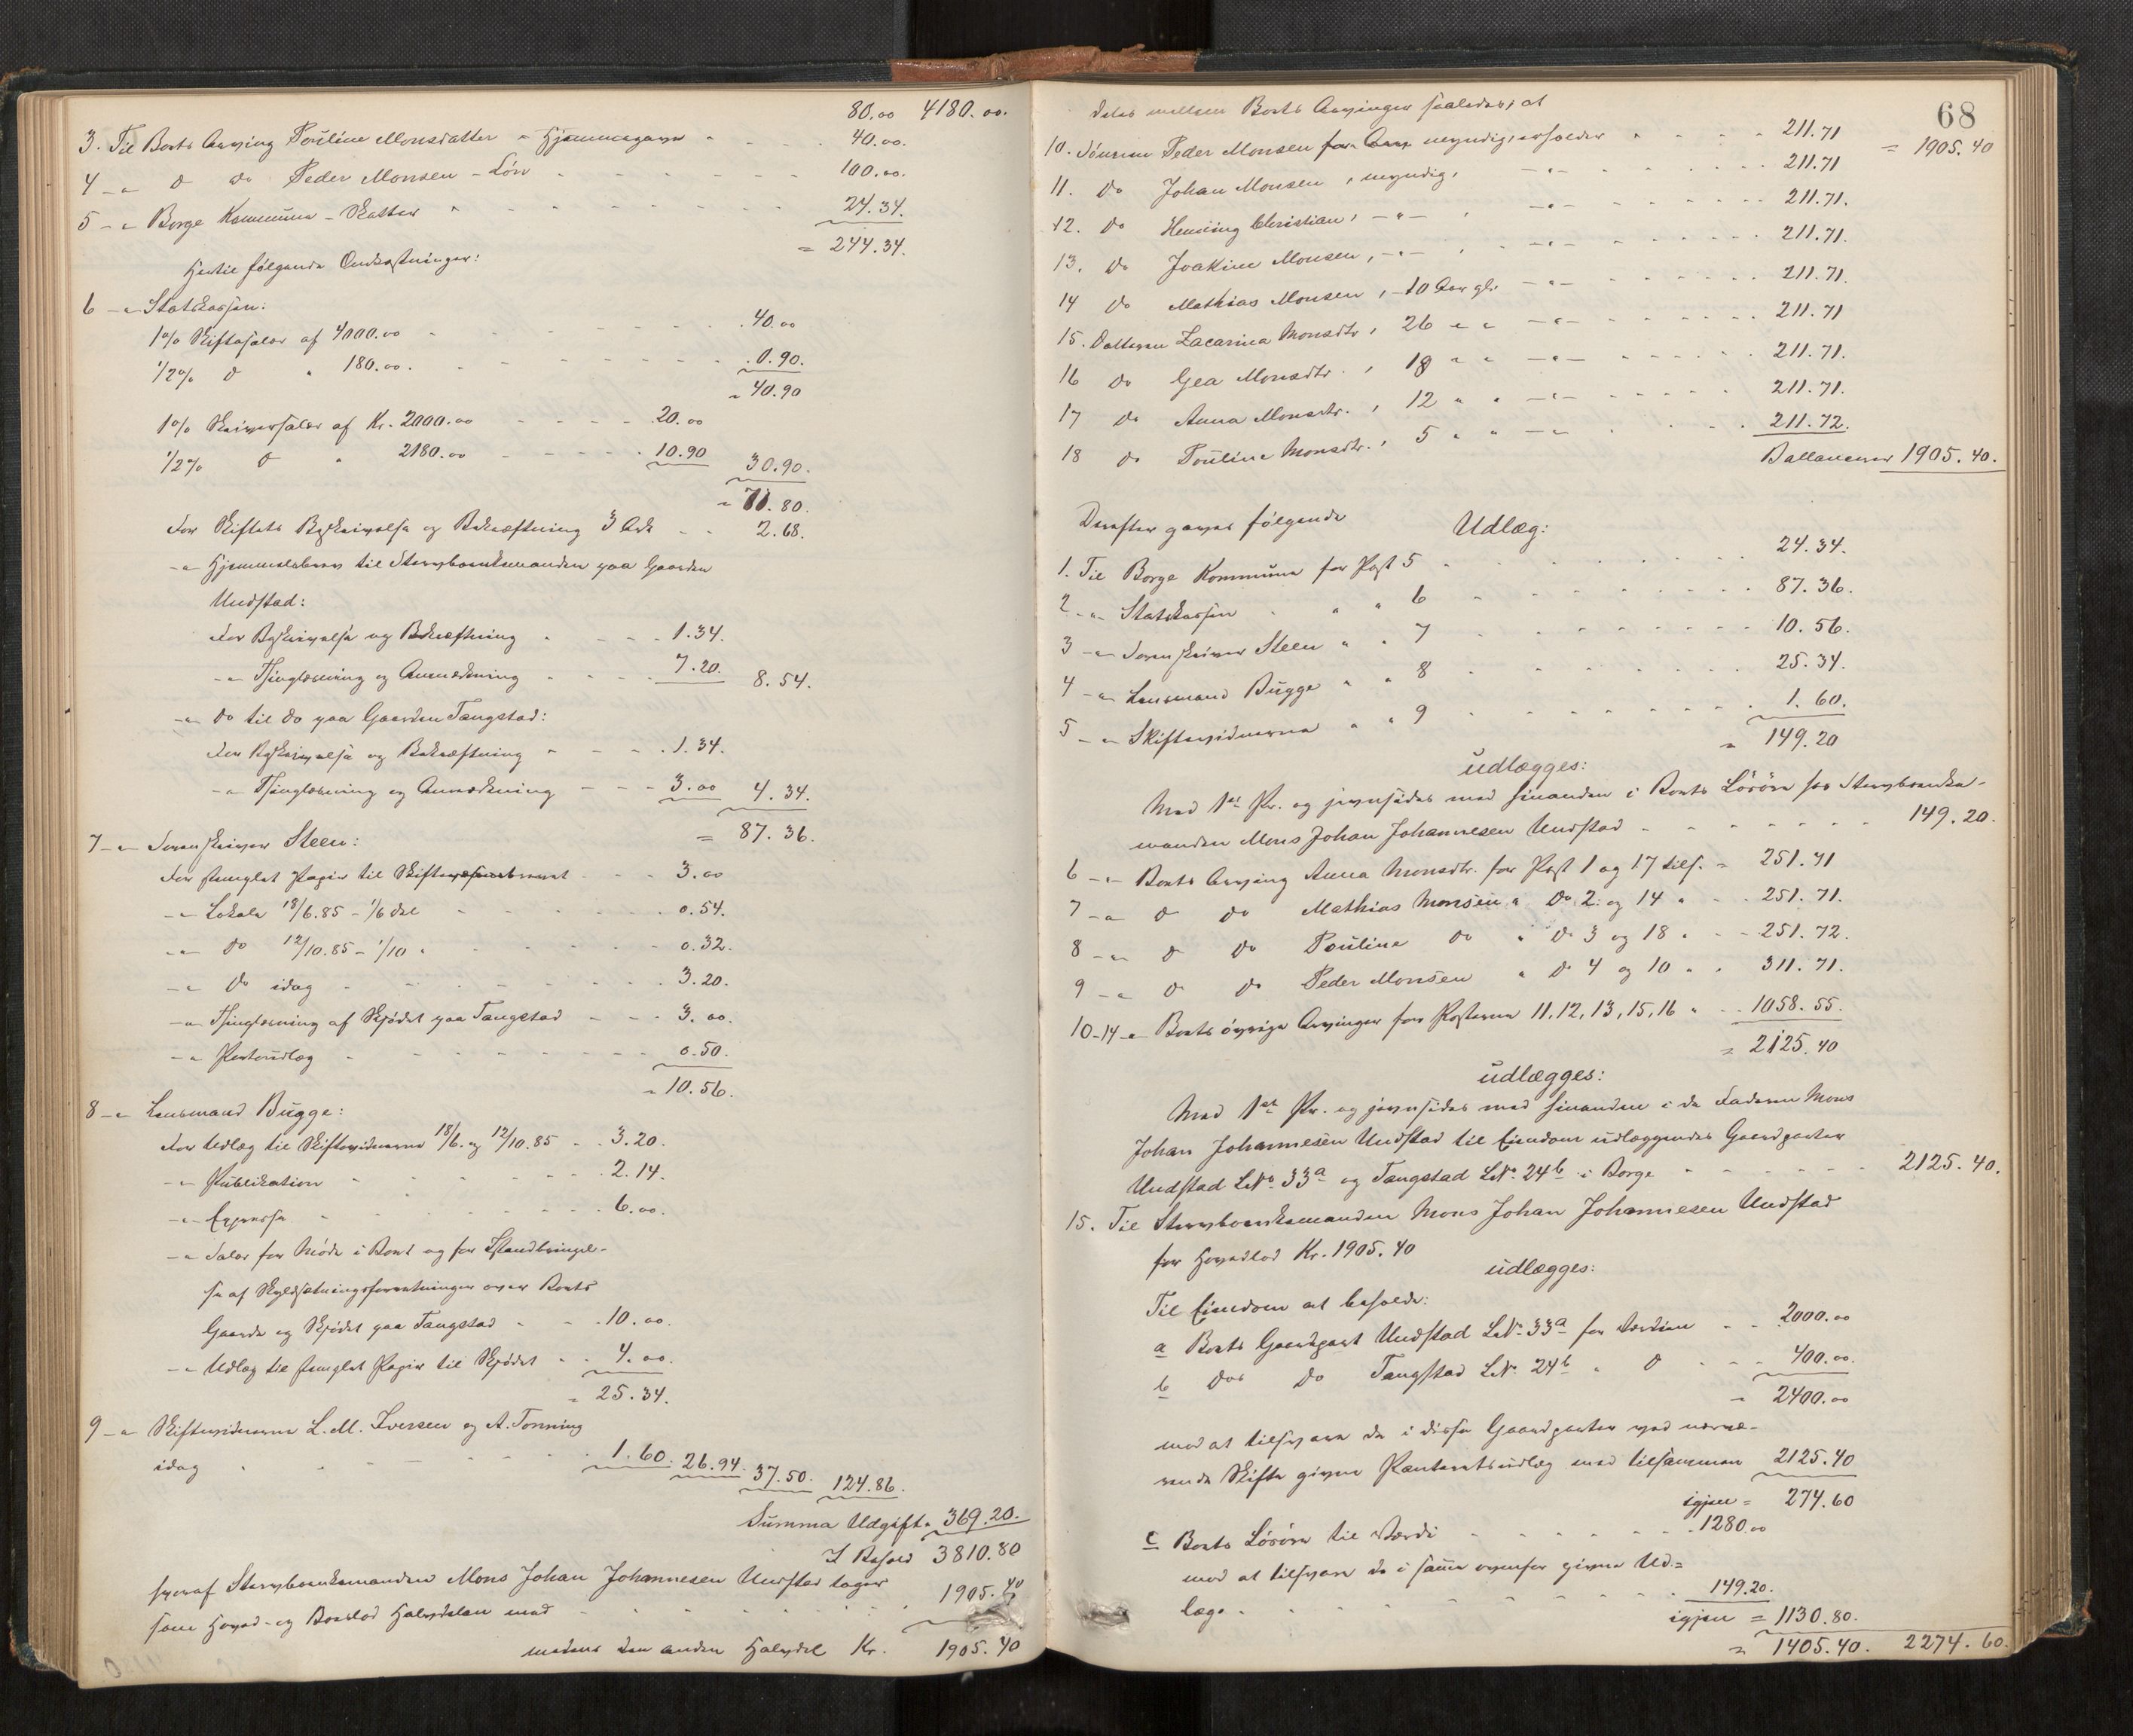 80.00 4180.00.
3. Til Boets Arving Pouline Monsdatter - Hjemmegave - 40.00.
4 - " D Do Peder Monsen - Lön 100.00.
5 - " Borge Kommune - Skatter 24.34.
= 244.34.
Hertil følgende Omkostninger:
6 - " Statskassen:
1% Skiftesalær af 4000.00 40.00
1/2% D " 180.00. 0.90.
= 40.90
1% Skriversalær af Kr. 2000.00 20.00
1/2% D " 2180.00 10.90 30.90.
= 71.80.
For Skiftets Beskrivelse og Bekræftning 3 Ark 2.68.
- " Hjemmelsbrev til Stervboenkemanden paa Gaarden
Undstad:
For Beskrivelse og Bekræftning 1.34.
- " Thinglæsning og Anmerkning 7.20. 8.54.
- " Do til Do paa Gaarden Tangstad:
For Beskrivelse og Bekræftning 1.34.
- " Thinglæsning og Anmerkning 3.00 4.34.
= 87.36.
7 - " Sorenskriver Steen:
For stemplet Papir til 3.00
- " Lokale 18/6.85 - 1/6 del 0.54.
- " Do 12/10.85 - 1/10 " 0.32.
- " Do idag 3.20.
- " Thinglæsning af Skjödet paa Tangstad 3.00.
- " Portoudlæg 0.50.
= 10.56.
8 - " Lensmand Bugge:
For Udlæg til Skiftevidnerne 18/6. og 12/10.85 3.20.
- " Publikation 2.14.
- " Expresse 6.00.
- " Salær for Möde i Boet og for Istandbringel-
se af Skyldsætningsforretninger over Boets
Gaarde og Skjödet paa Tangstad 10.00.
- " Udlæg til stemplet Papir til Skjödet 4.00.
= 25.34.
9 - " Skiftevidnerne L. M. Iversen og A. Tonning
idag 1.60. 26.94. 37.50. 124.86.
Summa Udgift = 369.20.
I Behold 3810.80
hvoraf Stervboenkemanden Mons Johan Johannesen Undstad tager
som Hoved- og Boeslod Halvdelen med 1905.40
medens den anden Halvdel Kr. 1905.40
68
deles mellem Boets Arvinger saaledes, at
10. Sönnen Peder Monsen myndig, erholder 211.71 = 1905.40
11. Do Johan Monsen, myndig, - " - 211.71
12. Do Henning Christian, - " - , - " - 211.71.
13. Do Joakim Monsen, - " - , - " - 211.71.
14 Do Mathias Monsen, - 10 Aar gl. - " - 211.71.
15. Datteren Zacarina Monsdtr, 26 " " - " - 211.71
16 Do Gea Monsdtr., 18 " " - " - 211.71.
17 Do Anna Monsdtr., 12 " " - " - 211.71.
18 Do Pouline Monsdtr., 5 " " - " - 211.72.
Ballancerer 1905.40.
Derefter gaves følgende
Udlæg:
1. Til Borge Kommune for Post 5 24.34.
2 - " Statskassen " " 6 87.36.
3 - " Sorenskriver Steen " " 7 10.56.
4 - " Lensmand Bugge " " 8 25.34.
5 - " Skiftevidnerne " " 9 1.60.
= 149.20
udlægges:
Med 1st Pr. og jevnsides med hinanden i Boets Lösöre hos Stervboenke-
manden Mons Johan Johannesen Undstad 149.20.
6 - " Boets Arving Anna Monsdtr. for Post 1 og 17 tils. = 251.71
7 - " D Do Mathias Monsen " Do 2. og 14 " 251.71.
8 - " D Do Pouline Do " Do 3 og 18 " 251.72.
9 - " D Do Peder Monsen " D 4 og 10 " 311.71.
10-14 - " Boets övrige Arvinger for Posterne 11, 12, 13, 15, 16 " 1058.55.
= 2125.40
udlægges:
Med 1st Pr. og jevnsides med hinanden i de Faderen Mons
Johan Johannesen Undstad til Eiendom udlæggendes Gaardparter
Undstad LNo. 33a og Tangstad LNo. 24b i Borge 2125.40.
15. Til Stervboenkemanden Mons Johan Johannesen Undstad
for Hovedlod Kr. 1905.40
udlægges:
Til Eiendom at beholde:
a Boets Gaardpart Undstad LNo. 33a for Værdien 2000.00
b Dos Do Tangstad LNo. 24b " D 400.00.
= 2400.00
mod at tilsvare de i disse Gaardparter ved nærvæ-
rende Skifte givne Panteretsudlæg med tilsammen 2125.40
igjen = 274.60
c Boets Lösöre til Værdi 1280.00
mod at tilsvare de i samme ovenfor givne Ud-
læg. 149.20.
igjen = 1130.80.
= 1405.40. 2274.60.